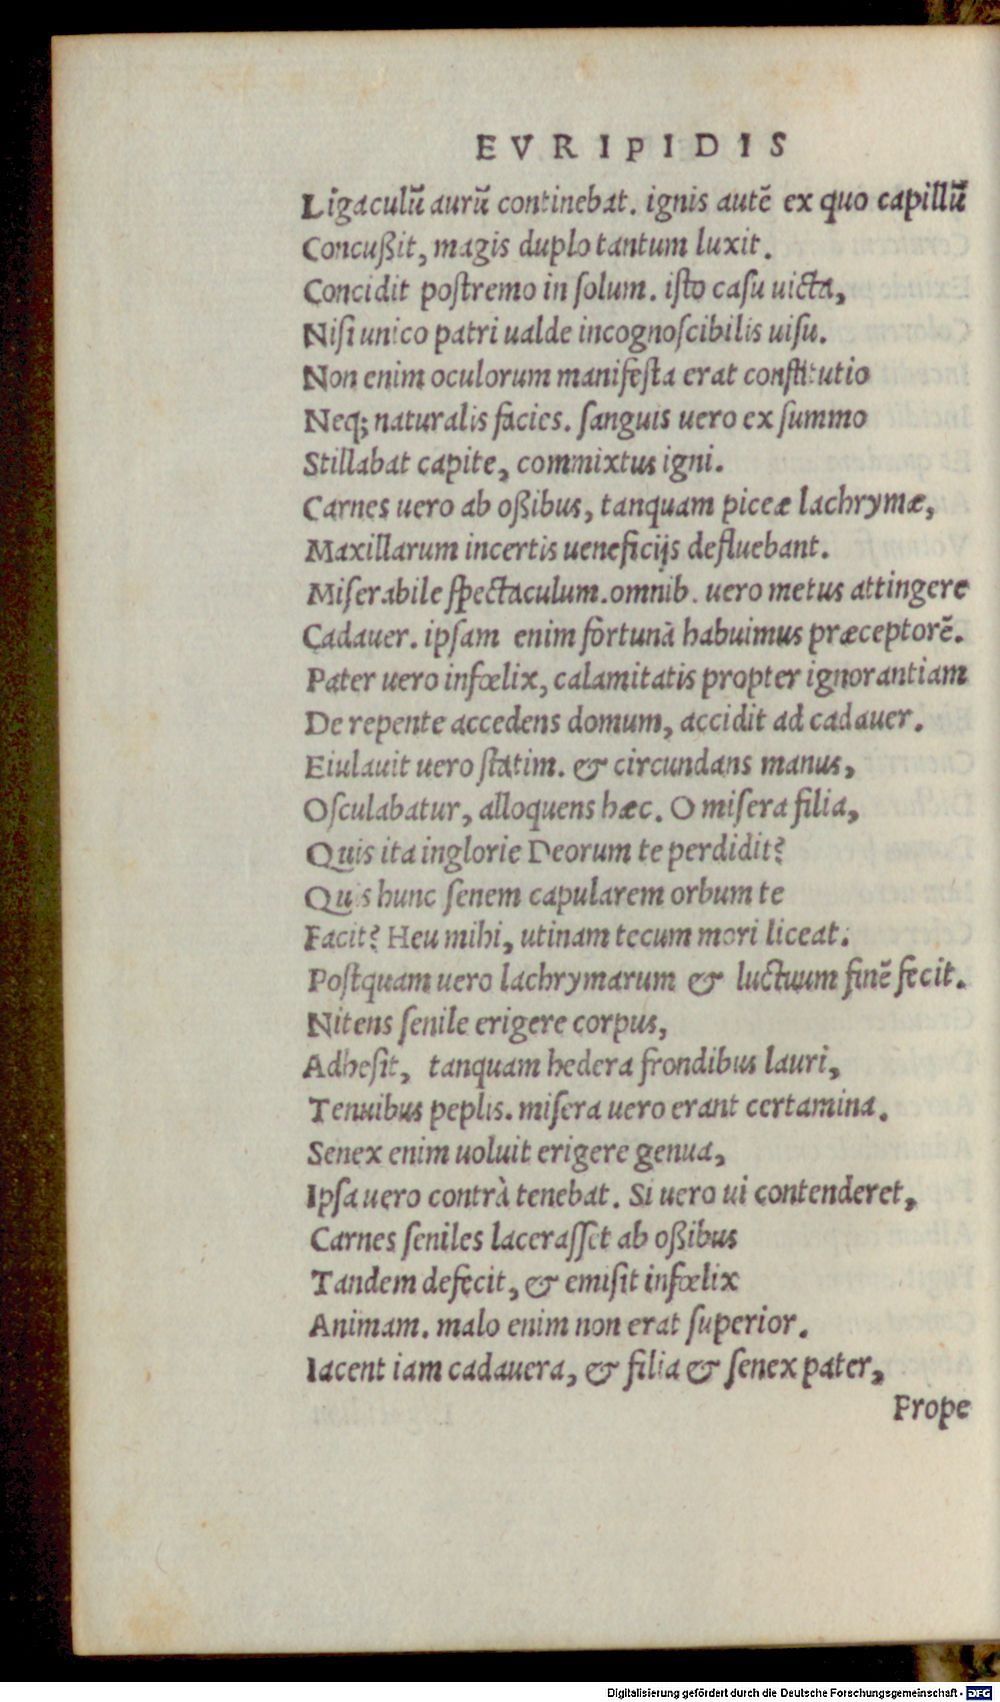 EVRIPIDIS
Ligaculũ aurũ continebat. ignis autẽ ex quo capillũ
Concußit, magis duplo tantum luxit.
Concidit postremo in solum. isto casu uicta,
Nisi unico patri ualde incognoscibilis uisu.
Non enim oculorum manifesta erat constitutio
Neq; naturalis facies. sanguis uero ex summo
Stillabat capite, commixtus igni.
Carnes uero ab oßibus, tanquam piceæ lachrymæ,
Maxillarum incertis ueneficijs defluebant.
Miserabile spectaculum. omnib. uero metus attingere
Cadauer. ipsam enim fortunã habuimus præceptorẽ.
Pater uero infœlix, calamitatis propter ignorantiam
De repente accedens domum, accidit ad cadauer.
Eiulauit uero statim. & circundans manus,
Osculabatur, alloquens hæc. O misera filia,
Quis ita inglorie Deorum te perdidit?
Quis hunc senem capularem orbum te
Facit? Heu mihi, utinam tecum mori liceat.
Postquam uero lachrymarum & luctuum finẽ fecit.
Nitens senile erigere corpus,
Adhesit, tanquam hedera frondibus lauri,
Tenuibus peplis. misera uero erant certamina.
Senex enim uoluit erigere genua,
Ipsa uero contrà tenebat. Si uero ui contenderet,
Carnes seniles lacerasset ab oßibus
Tandem defecit, & emisit infœlix
Animam. malo enim non erat superior.
Iacent iam cadauera, & filia & senex pater,
Prope
Digitalisierung gefördert durch die Deutsche Forschungsgemeinschaft - DFG